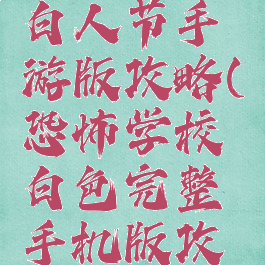 白人节手
游版攻略(
恐怖学校
白色完整
手机版攻